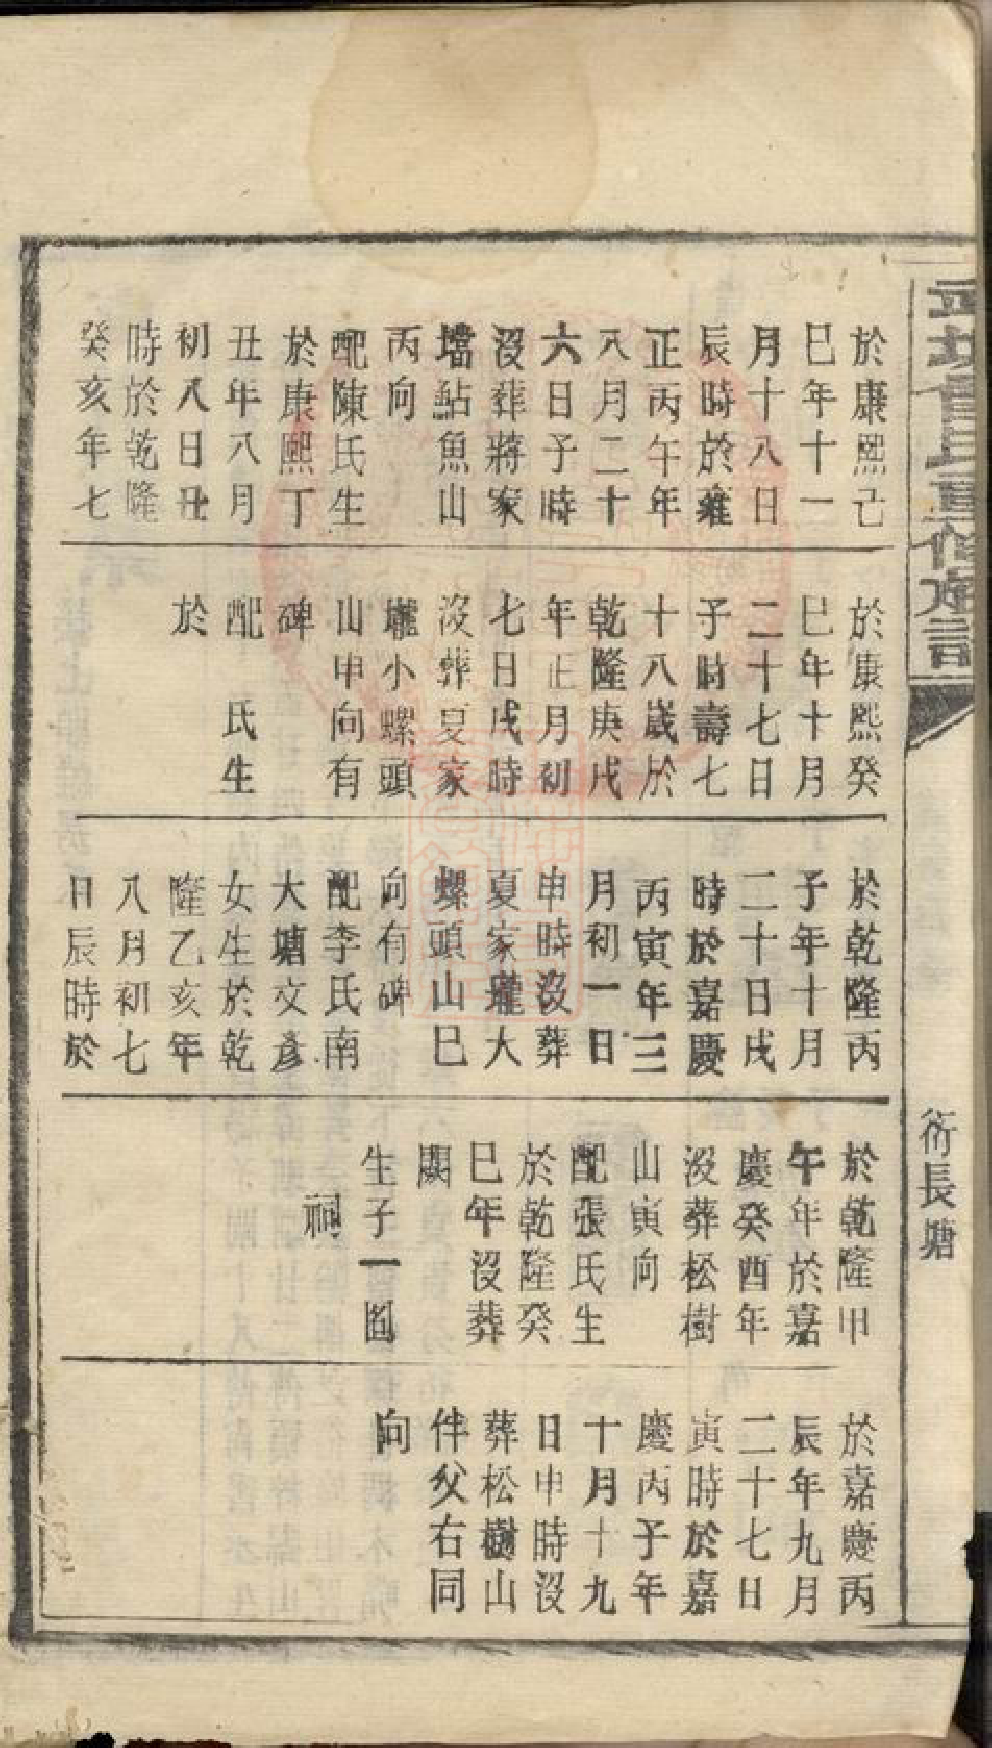 於康熙己
巳年十一
月十八日
辰時於雍
正丙午年
八月二十
六日子時
沒葬蔣家
壋鮎魚山
丙向
配陳氏生
於康熙丁
丑年八月
初八日丑
時於乾隆
癸亥年七
於康熙癸
巳年十月
二十七日
子時壽七
十八歲於
乾隆庚戌
年正月初
七日戌時
沒葬夏家
壠小螺頭
山申向有
碑
配　氏生
於
於乾隆丙
子年十月
二十日戌
時於嘉慶
丙寅年三
月初一日
申時沒葬
夏家壠大
螺頭山巳
向有碑
配李氏南
大塘文彥
女生於乾
隆乙亥年
八月初七
日辰時於
於乾隆甲
午年於嘉
慶癸酉年
沒葬松樹
山寅向
配張氏生
於乾隆癸
巳年沒葬
闕
生子一
祠
於嘉慶丙
辰年九月
二十七日
寅時於嘉
慶丙子年
十月十九
日申時沒
葬松樹山
伴父右同
向
衍長塘